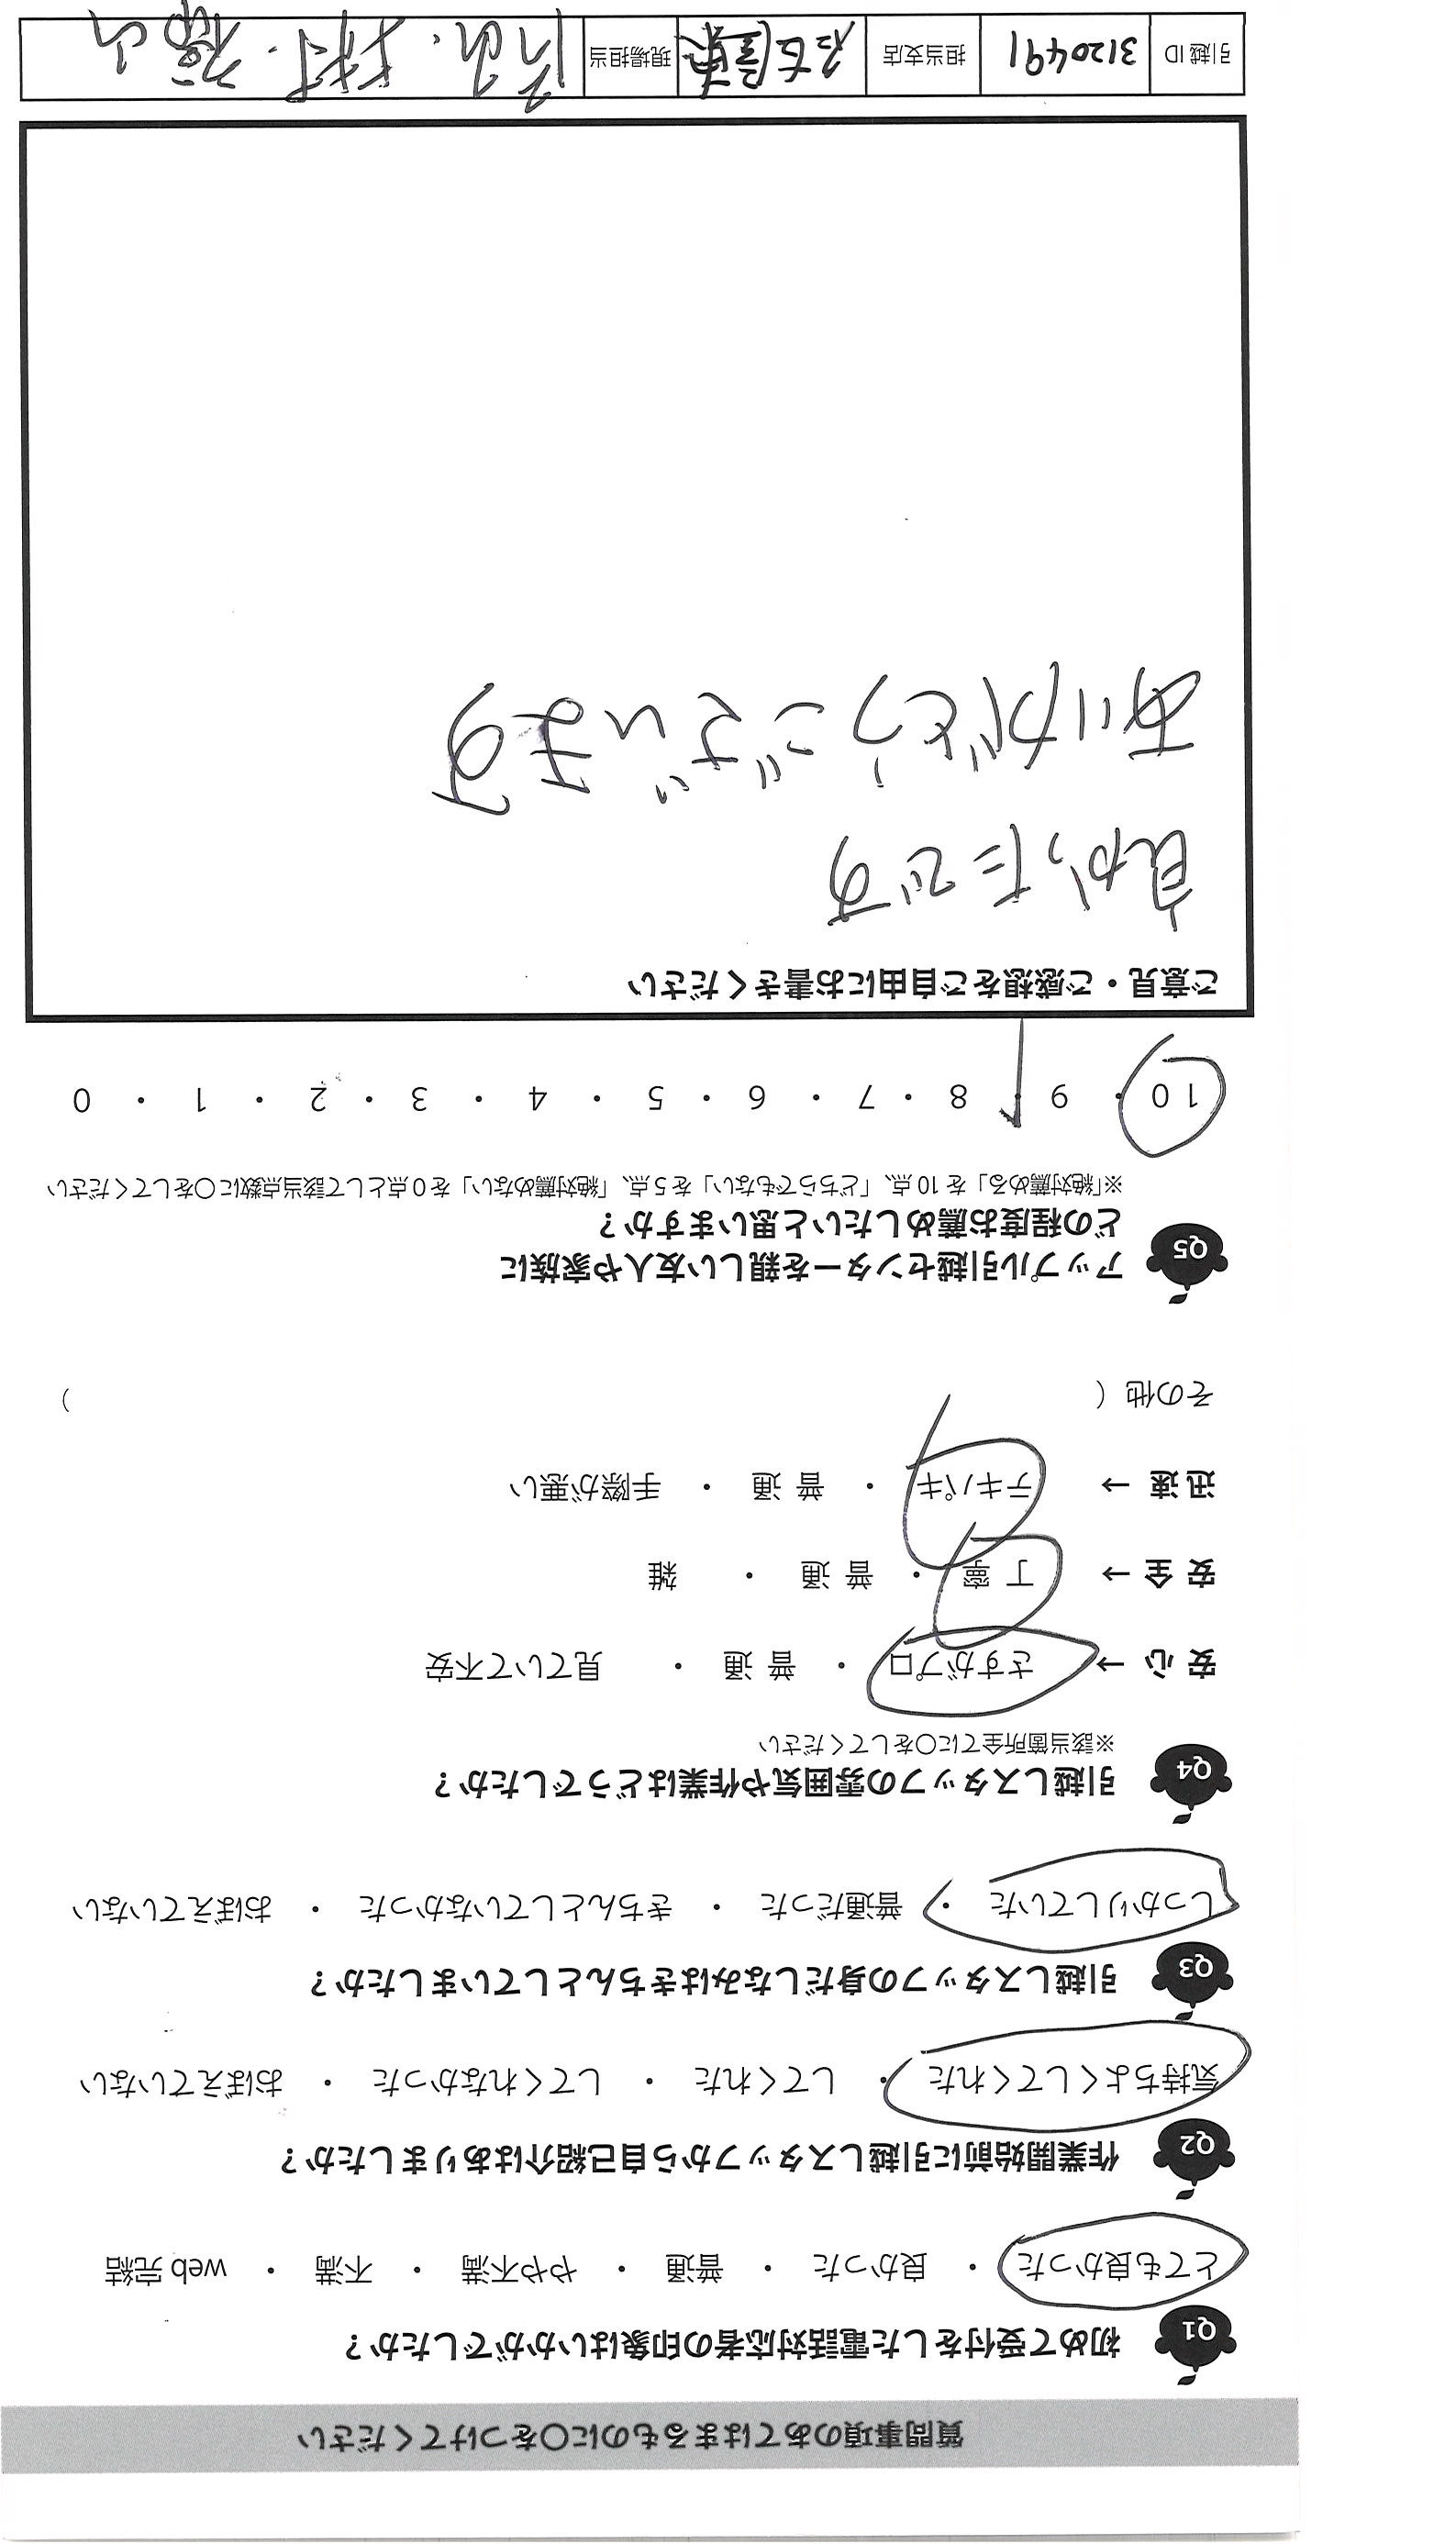 質問事項のあてはまるものに○をつけてください
Q1 初めて受付をした電話対応者の印象はいかがでしたか？
とても良かった ・ 良かった ・ 普通 ・ やや不満 ・ 不満 ・ web 完結
Q2 作業開始前に引越しスタッフから自己紹介はありましたか？
気持ちよくしてくれた ・ してくれた ・ してくれなかった ・ おぼえていない
Q3 引越しスタッフの身だしなみはきちんとしていましたか？
しっかりしていた ・ 普通だった ・ きちんとしていなかった ・ おぼえていない
Q4 引越しスタッフの雰囲気や作業はどうでしたか？
※該当箇所全てに○をしてください
安 心 → さすがプロ ・ 普 通 ・ 見ていて不安
安 全 → 丁 寧 ・ 普 通 ・ 雑
迅 速 → テキパキ ・ 普 通 ・ 手際が悪い
その他（ ）
Q5 アップル引越センターを親しい友人や家族に
どの程度お薦めしたいと思いますか？
※「絶対薦める」を10点、「どちらでもない」を5点、「絶対薦めない」を0点として該当点数に○をしてください
10 ・ 9 ・ 8 ・ 7 ・ 6 ・ 5 ・ 4 ・ 3 ・ 2 ・ 1 ・ 0
ご意見・ご感想をご自由にお書きください
良かったです
ありがとうございます
引越ID 3120491 担当支店 名古屋東 現場担当